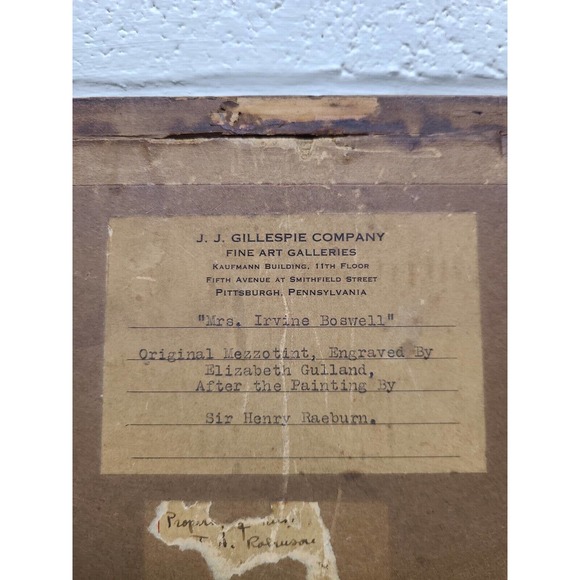 J. J. GILLESPIE COMPANY
FINE ART GALLERIES
KAUFMANN BUILDING, 11TH FLOOR
FIFTH AVENUE AT SMITHFIELD STREET
PITTSBURGH, PENNSYLVANIA
"Mrs. Irvine Boswell"
Original Mezzotint, Engraved By
Elizabeth Gulland,
After the Painting By
Sir Henry Raeburn.
of
Robinson